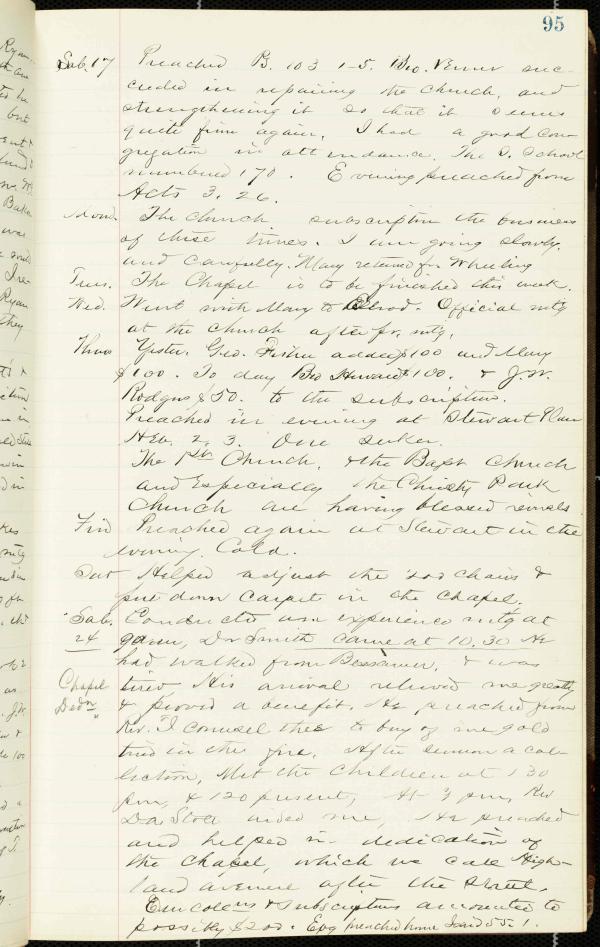 95
Sab. 17 Preached P. 103 1-5. Bro. Verner suc-
ceeded in repairing the church, and
strengthening it so that it seems
quite firm again. I had a good con-
gregation in attendance. The S. School
numbered 170. Evening preached from
Acts 3. 26.
Mond. The church subscription the business
of these times. I am going slowly.
and carefully. Mary returned fr. Wheeling
Tues. The Chapel is to be finished this week.
Wed. Went with Mary to Elrod. Official mtg
at the church after pr. mtg.
Thurs Yester. Geo. Fisher added $100 and Mary
$100. To day Bro Howard $100. & J. W.
Rodgers $50. to the subscription.
Preached in evening at Stewart Place
Heb. 2. 3. One seeker.
The 1st Church, & the Bapt church
and Especially the Christy Park
Church are having blessed revivals.
Frid Preached again at Stewart in the
evening. Cold.
Sat Helped adjust the 200 chairs &
put down carpet in the chapel.
Sab. Conducted an experience mtg at
24 9 a m, Dr Smith came at 10.30 He
had walked from Bessemer, & was
Chapel tired His arrival relieved me greatly
Dedn & proved a benefit. He preached from
Rev. "I counsel thee to buy of me gold
tried in the fire. After sermon a col-
lection, Met the children at 1 30
pm, & 120 present, At 3 pm, Rev
aided me, He preached
and helped in dedication of
the chapel, which we call High-
land avenue after the street.
& Subscriptions amounted to
possibly $200. Evg preached home Isaiah 55. 1.